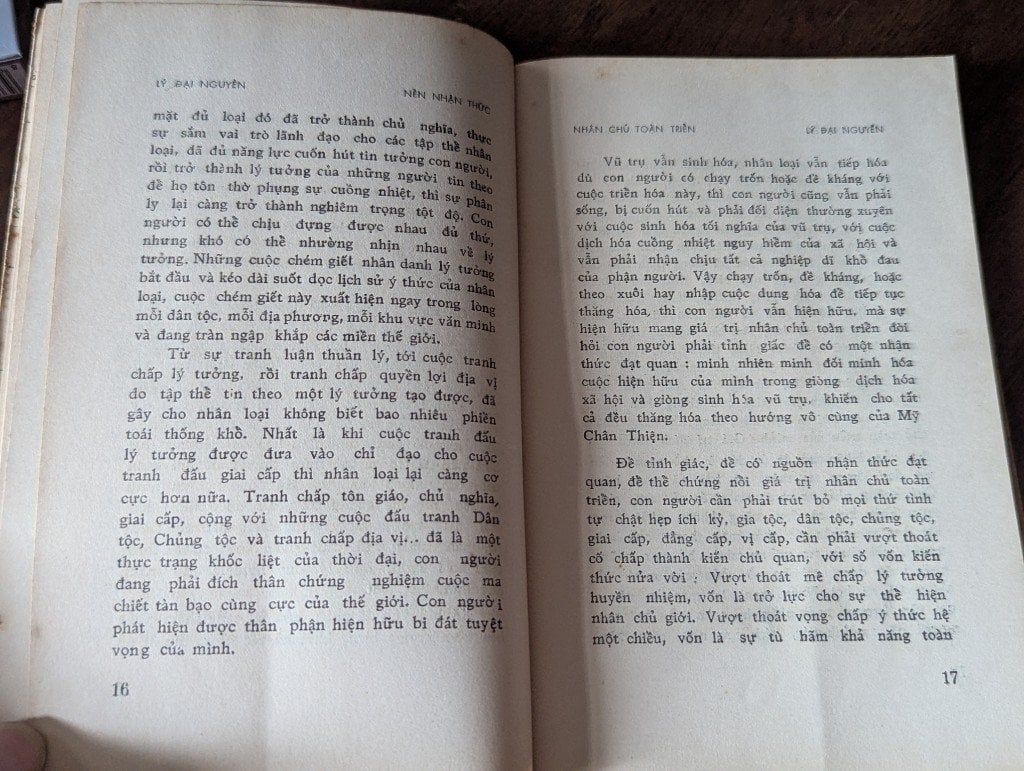 LÝ ĐẠI NGUYÊN
NỀN NHẬN THỨC
mặt đủ loại đó đã trở thành chủ nghĩa, thực
sự sắm vai trò lãnh đạo cho các tập thể nhân
loại, đã đủ năng lực cuốn hút tin tưởng con người,
rồi trở thành lý tưởng của những người tin theo
để họ tôn thờ phụng sự cuồng nhiệt, thì sự phân
ly lại càng trở thành nghiêm trọng tột độ. Con
người có thể chịu đựng được nhau đủ thứ,
nhưng khó có thể nhường nhịn nhau về lý
tưởng. Những cuộc chém giết nhân danh lý tưởng
bắt đầu và kéo dài suốt dọc lịch sử ý thức của nhân
loại, cuộc chém giết này xuất hiện ngay trong lòng
mỗi dân tộc, mỗi địa phương, mỗi khu vực văn minh
và đang tràn ngập khắp các miền thế giới.
Từ sự tranh luận thuần lý, tới cuộc tranh
chấp lý tưởng, rồi tranh chấp quyền lợi địa vị
do tập thể tin theo một lý tưởng tạo được, đã
gây cho nhân loại không biết bao nhiêu phiền
toái thống khổ. Nhất là khi cuộc tranh đấu
lý tưởng được đưa vào chỉ đạo cho cuộc
tranh đấu giai cấp thì nhân loại lại càng cơ
cực hơn nữa. Tranh chấp tôn giáo, chủ nghĩa,
giai cấp, cộng với những cuộc đấu tranh Dân
tộc, Chủng tộc và tranh chấp địa vị... đã là một
thực trạng khốc liệt của thời đại, con người
đang phải đích thân chứng nghiệm cuộc ma
chiết tàn bạo cùng cực của thế giới. Con người
phát hiện được thân phận hiện hữu bi đát tuyệt
vọng của mình.
16
NHÂN CHỦ TOÀN TRIỂN
LÝ ĐẠI NGUYÊN
Vũ trụ vẫn sinh hóa, nhân loại vẫn tiếp hóa
dù con người có chạy trốn hoặc đề kháng với
cuộc triển hóa này, thì con người cũng vẫn phải
sống, bị cuốn hút và phải đối diện thường xuyên
với cuộc sinh hóa tối nghĩa của vũ trụ, với cuộc
dịch hóa cuồng nhiệt nguy hiểm của xã hội và
vẫn phải nhận chịu tất cả nghiệp dĩ khổ đau
của phận người. Vậy chạy trốn, đề kháng, hoặc
theo xuôi hay nhập cuộc dung hóa để tiếp tục
thăng hóa, thì con người vẫn hiện hữu, mà sự
hiện hữu mang giá trị nhân chủ toàn triển đòi
hỏi con người phải tỉnh giác để có một nhận
thức đạt quan : minh nhiên minh đối minh hóa
cuộc hiện hữu của mình trong giòng dịch hóa
xã hội và giòng sinh hóa vũ trụ, khiến cho tất
cả đều thăng hóa theo hướng vô cùng của Mỹ
Chân Thiện.
Để tỉnh giác, để có nguồn nhận thức đạt
quan, để thể chứng nổi giá trị nhân chủ toàn
triển, con người cần phải trút bỏ mọi thứ tình
tự chật hẹp ích kỷ, gia tộc, dân tộc, chủng tộc,
giai cấp, đẳng cấp, vị cấp, cần phải vượt thoát
cố chấp thành kiến chủ quan, với số vốn kiến
thức nửa vời : Vượt thoát mê chấp lý tưởng
huyền nhiệm, vốn là trở lực cho sự thể hiện
nhân chủ giới. Vượt thoát vọng chấp ý thức hệ
một chiều, vốn là sự tù hãm khả năng toàn
17